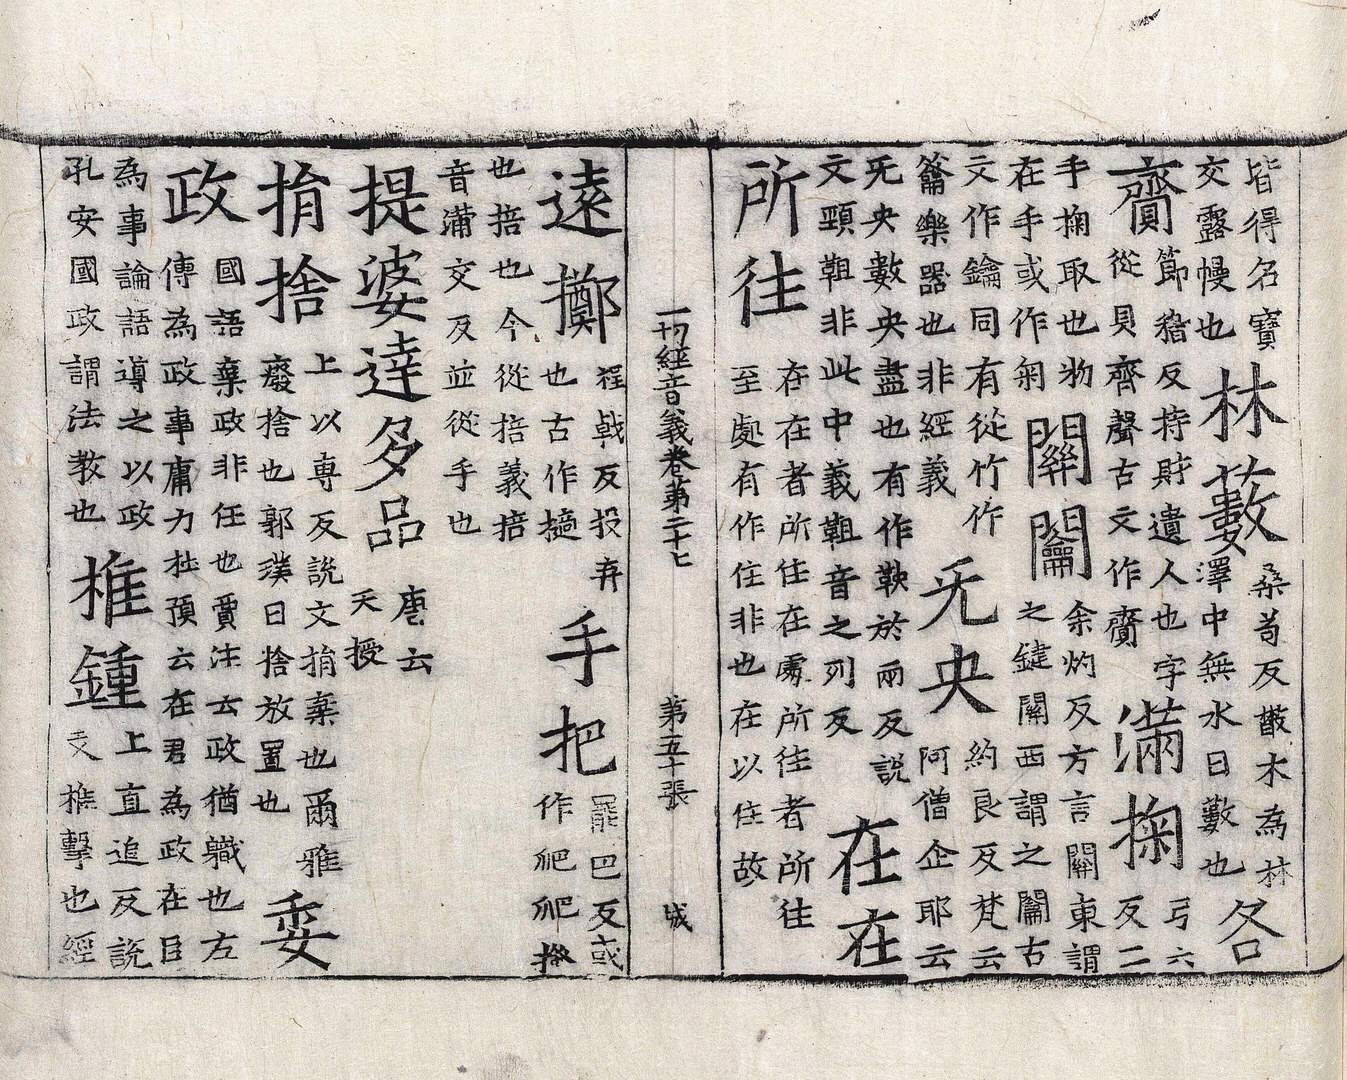 皆得名寶
交露幔也
林藪
桑苟反叢木為林
澤中無水曰藪也
各
齎
節稽反持財遺人也字
從貝齊聲古文作齎
滿掬
弓六
反二
手掬取也物
在手或作匊
關闟
余灼反方言關東謂
之鍵關西謂之闟古
文作鑰同有從竹作
籥樂器也非經義
无央
約良反梵云
阿僧企耶云
无央數央盡也有作鞅於兩反說
文頸靼非此中義靼音之列反
在在
所往
在在者所住在處所往者所往
至處有作住非也在以住故
一切經音義卷第二十七 第五十張 城
遠擲
程戟反投弃
也古作擿
手把
罷巴反或
作爬爬搔
也掊也今從掊義掊
音蒲交反並從手也
提婆達多品
唐云
天授
捐捨
上以専反說文捐棄也爾雅
廢捨也郭璞曰捨放置也
委
政
國語棄政非任也賈注云政猶職也左
傳為政事庸力杜預云在君為政在臣
為事論語導之以政
孔安國政謂法教也
椎鍾
上直追反說
文椎擊也經